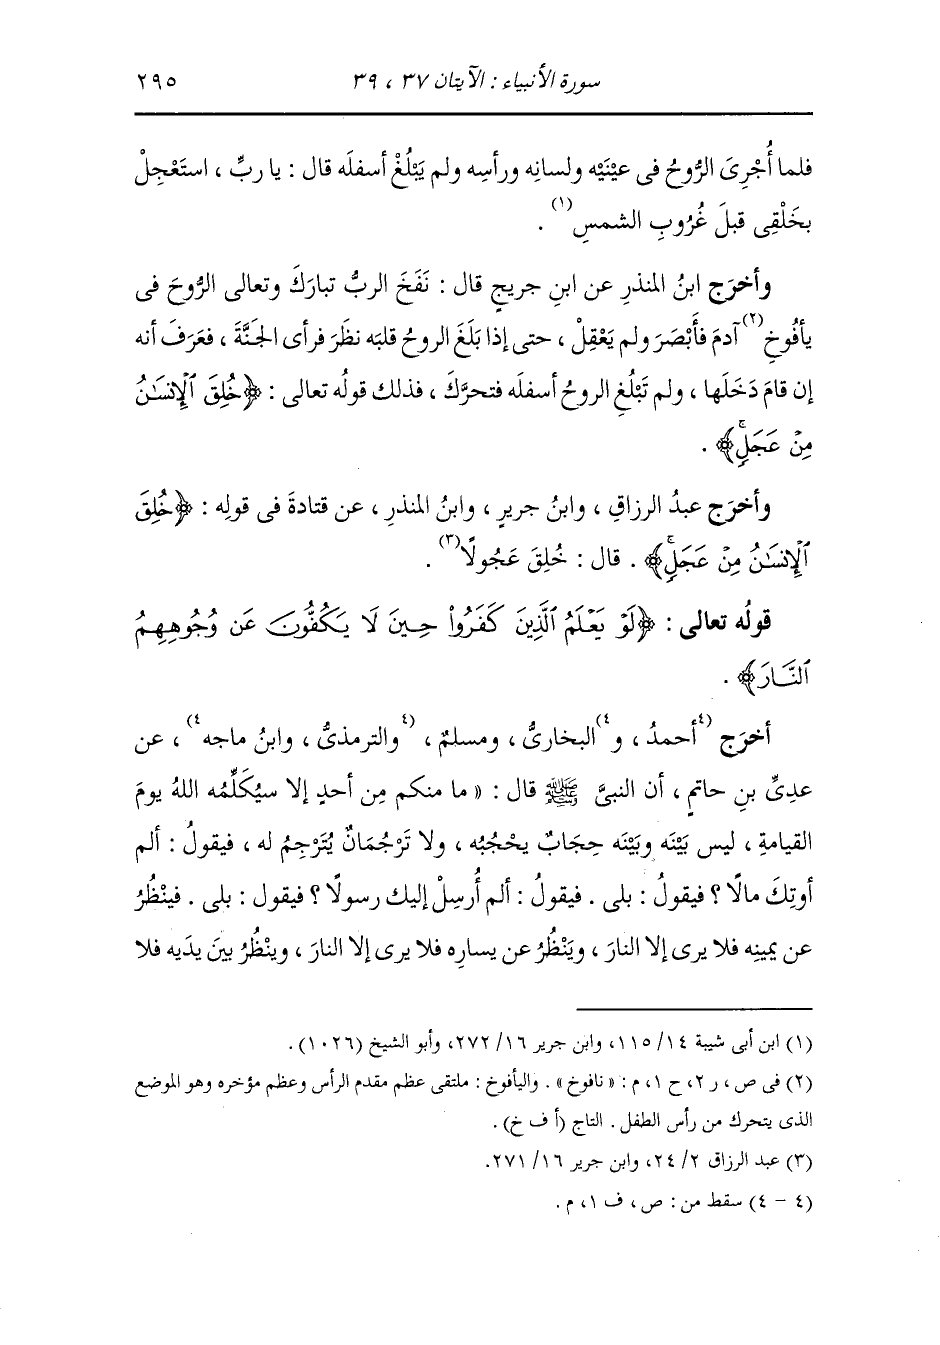 سورة الأنبياء : الآيتان ٣٧ ، ٣٩ ٢٩٥
فلما أُجْرِىَ الرُّوحُ فى عيْنَيْه ولسانِه ورأسِه ولم يَبْلُغْ أسفلَه قال : يا ربِّ ، استَعْجِلْ
بخَلْقِى قبلَ غُرُوبِ الشمسِ(١) .
وأخرَج ابنُ المنذرِ عن ابنِ جريجٍ قال : نَفَخَ الربُّ تبارَكَ وتعالى الرُّوحَ فى
يأفُوخِ(٢) آدمَ فأَبْصَرَ ولم يَعْقِلْ ، حتى إذا بَلَغَ الروحُ قلبَه نظَرَ فرأى الجَنَّةَ ، فعَرَفَ أنه
إن قامَ دَخَلَها ، ولم تَبْلُغِ الروحُ أسفلَه فتحرَّكَ ، فذلك قولُه تعالى : ﴿خُلِقَ ٱلْإِنسَـٰنُ
مِنْ عَجَلٍۚ﴾ .
وأخرَج عبدُ الرزاقِ ، وابنُ جريرٍ ، وابنُ المنذرِ ، عن قتادةَ فى قولِه : ﴿خُلِقَ
ٱلْإِنسَـٰنُ مِنْ عَجَلٍۚ﴾ . قال : خُلِقَ عَجُولًا(٣) .
قولُه تعالى : ﴿لَوْ يَعْلَمُ ٱلَّذِينَ كَفَرُوا۟ حِينَ لَا يَكُفُّونَ عَن وُجُوهِهِمُ
ٱلنَّارَ﴾ .
أخرَج (٤أحمدُ ، و٤)البخارىُّ ، ومسلمٌ ، (٤والترمذىُّ ، وابنُ ماجه٤) ، عن
عدِىِّ بنِ حاتمٍ ، أن النبىَّ ﷺ قال : « ما منكم مِن أحدٍ إلا سيُكَلِّمُه اللهُ يومَ
القيامةِ ، ليس بَيْنَه وبَيْنَه حِجَابٌ يحْجُبُه ، ولا تَرْجُمَانٌ يُتَرْجِمُ له ، فيقولُ : ألم
أوتِكَ مالًا ؟ فيقولُ : بلى . فيقولُ : ألم أُرسِلْ إليك رسولًا ؟ فيقول : بلى . فينْظُرُ
عن يمينِه فلا يرى إلا النارَ ، ويَنْظُرُ عن يسارِه فلا يرى إلا النارَ ، وينْظُرُ بينَ يدَيه فلا
(١) ابن أبى شيبة ١٤/ ١١٥، وابن جرير ١٦/ ٢٧٢، وأبو الشيخ (١٠٢٦) .
(٢) فى ص ، ر ٢، ح ١، م : « نافوخ » . واليأفوخ : ملتقى عظم مقدم الرأس وعظم مؤخره وهو الموضع
الذى يتحرك من رأس الطفل . التاج (أ ف خ) .
(٣) عبد الرزاق ٢/ ٢٤، وابن جرير ١٦/ ٢٧١.
(٤ - ٤) سقط من : ص ، ف ١، م .